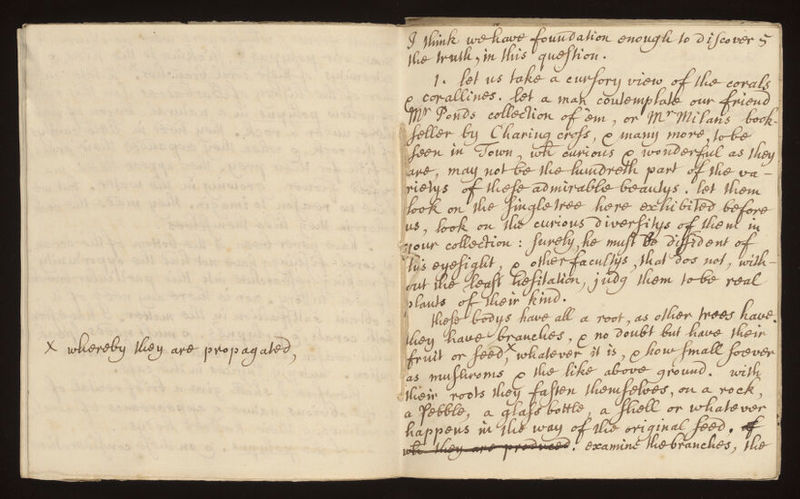 x whereby they are propagated,
I think we have foundation enough to discover 5
the truth, in this question.
1. let us take a cursory view of the corals
& corallines. let a man contemplate our friend
Mr Ponds collection of em, or Mr Milans book-
seller by Charing cross, & many more, to be
seen in Town, wh curious & wonderful as they
are, may not be the hundreth part of the va-
rietys of these admirable beautys. let them
look on the single tree here exhibited before
us, look on the curious diversitys of them in
your collection: surely, he must be diffident of
his eyesight, & other facultys, that dos not, with-
out the least hesitation, judg them to be real
plants of their kind.
these bodys have all a root, as other trees have.
they have branches, & no doubt but have their
fruit or seed x whatever it is, & how small soever
as mushroms & the like above ground. with
their roots they fasten themselves, on a rock,
a Pebble, a glass bottle, a shell or whatever
happens in the way of the original seed. of
wh they are produced. examine the branches, the